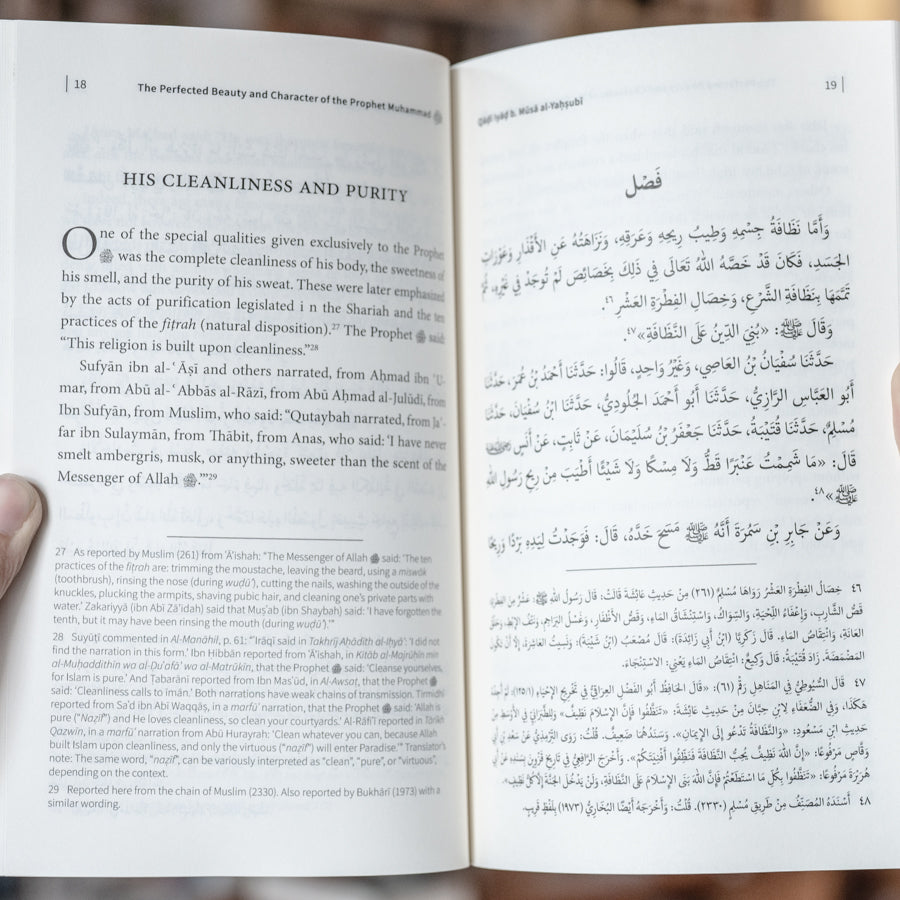 18
The Perfected Beauty and Character of the Prophet Muhammad ﷺ
HIS CLEANLINESS AND PURITY
One of the special qualities given exclusively to the Prophet
ﷺ was the complete cleanliness of his body, the sweetness of
his smell, and the purity of his sweat. These were later emphasized
by the acts of purification legislated i n the Shariah and the ten
practices of the fiṭrah (natural disposition).27 The Prophet ﷺ said:
“This religion is built upon cleanliness.”28
Sufyān ibn al-ʿĀṣī and others narrated, from Aḥmad ibn ʿU-
mar, from Abū al-ʿAbbās al-Rāzī, from Abū Aḥmad al-Julūdī, from
Ibn Sufyān, from Muslim, who said: “Qutaybah narrated, from Jaʿ-
far ibn Sulaymān, from Thābit, from Anas, who said: ‘I have never
smelt ambergris, musk, or anything, sweeter than the scent of the
Messenger of Allah ﷺ.’”29
27 As reported by Muslim (261) from ʿĀʾishah: “The Messenger of Allah ﷺ said: ‘The ten
practices of the fiṭrah are: trimming the moustache, leaving the beard, using a miswāk
(toothbrush), rinsing the nose (during wuḍūʾ), cutting the nails, washing the outside of the
knuckles, plucking the armpits, shaving pubic hair, and cleaning one’s private parts with
water.’ Zakariyyā (ibn Abī Zāʾidah) said that Muṣʿab (ibn Shaybah) said: ‘I have forgotten the
tenth, but it may have been rinsing the mouth (during wuḍūʾ).’”
28 Suyūṭī commented in Al-Manāhil, p. 61: “ʿIrāqī said in Takhrīj Aḥādīth al-Iḥyāʾ: ‘I did not
find the narration in this form.’ Ibn Hibbān reported from ʿĀʾishah, in Kitāb al-Majrūḥīn min
al-Muḥaddithīn wa al-Ḍuʿafāʾ wa al-Matrūkīn, that the Prophet ﷺ said: ‘Cleanse yourselves,
for Islam is pure.’ And Ṭabarānī reported from Ibn Masʿūd, in Al-Awsaṭ, that the Prophet ﷺ
said: ‘Cleanliness calls to imān.’ Both narrations have weak chains of transmission. Tirmidhī
reported from Saʿd ibn Abī Waqqāṣ, in a marfūʿ narration, that the Prophet ﷺ said: ‘Allah is
pure (“Naẓīf”) and He loves cleanliness, so clean your courtyards.’ Al-Rāfiʿī reported in Tārīkh
Qazwīn, in a marfūʿ narration from Abū Hurayrah: ‘Clean whatever you can, because Allah
built Islam upon cleanliness, and only the virtuous (“naẓīf”) will enter Paradise.’” Translator’s
note: The same word, “naẓīf”, can be variously interpreted as “clean”, “pure”, or “virtuous”,
depending on the context.
29 Reported here from the chain of Muslim (2330). Also reported by Bukhārī (1973) with a
similar wording.
Qāḍī Iyāḍ b. Mūsā al-Yaḥṣubī
19
فَصْل
وَأَمَّا نَظَافَةُ جِسْمِهِ وَطِيبُ رِيحِهِ وَعَرَقِهِ، وَنَزَاهَتُهُ عَنِ الأَقْذَارِ وَعَوْرَاتِ
الجَسَدِ، فَكَانَ قَدْ خَصَّهُ اللهُ تَعَالَى فِي ذَلِكَ بِخَصَائِصَ لَمْ تُوجَدْ فِي غَيْرِهِ، ثُمَّ
تَمَّمَهَا بِنَظَافَةِ الشَّرْعِ، وَخِصَالِ الفِطْرَةِ العَشْرِ٤٦.
وَقَالَ ﷺ: «بُنِيَ الدِّينُ عَلَى النَّظَافَةِ»٤٧.
حَدَّثَنَا سُفْيَانُ بْنُ العَاصِي، وَغَيْرُ وَاحِدٍ، قَالُوا: حَدَّثَنَا أَحْمَدُ بْنُ عُمَرَ، حَدَّثَنَا
أَبُو العَبَّاسِ الرَّازِيُّ، حَدَّثَنَا أَبُو أَحْمَدَ الجُلُودِيُّ، حَدَّثَنَا ابْنُ سُفْيَانَ، حَدَّثَنَا
مُسْلِمٌ، حَدَّثَنَا قُتَيْبَةُ، حَدَّثَنَا جَعْفَرُ بْنُ سُلَيْمَانَ، عَنْ ثَابِتٍ، عَنْ أَنَسٍ
قَالَ: «مَا شَمِمْتُ عَنْبَرًا قَطُّ وَلَا مِسْكًا وَلَا شَيْئًا أَطْيَبَ مِنْ رِيحِ رَسُولِ اللهِ
ﷺ»٤٨.
وَعَنْ جَابِرِ بْنِ سَمُرَةَ أَنَّهُ ﷺ مَسَحَ خَدَّهُ، قَالَ: فَوَجَدْتُ لِيَدِهِ بَرْدًا وَرِيحًا
٤٦ خِصَالُ الفِطْرَةِ العَشْرُ رَوَاهَا مُسْلِمٌ (٢٦١) مِنْ حَدِيثِ عَائِشَةَ قَالَتْ: قَالَ رَسُولُ اللهِ ﷺ: عَشْرٌ مِنَ الفِطْرَةِ:
قَصُّ الشَّارِبِ، وَإِعْفَاءُ اللِّحْيَةِ، وَالسِّوَاكُ، وَاسْتِنْشَاقُ المَاءِ، وَقَصُّ الأَظْفَارِ، وَغَسْلُ البَرَاجِمِ، وَنَتْفُ الإِبْطِ، وَحَلْقُ
العَانَةِ، وَانْتِقَاصُ المَاءِ. قَالَ زَكَرِيَّا (ابْنُ أَبِي زَائِدَةَ): قَالَ مُصْعَبُ (ابْنُ شَيْبَةَ): وَنَسِيتُ العَاشِرَةَ، إِلَّا أَنْ تَكُونَ
المَضْمَضَةَ. زَادَ قُتَيْبَةُ: قَالَ وَكِيعٌ: انْتِقَاصُ المَاءِ يَعْنِي: الاسْتِنْجَاءَ.
٤٧ قَالَ السُّيُوطِيُّ فِي المَنَاهِلِ رَقْمُ (٦١): «قَالَ الحَافِظُ أَبُو الفَضْلِ العِرَاقِيُّ فِي تَخْرِيجِ الإِحْيَاءِ (١/١٢٥): لَمْ أَجِدْهُ
هَكَذَا، وَفِي الضُّعَفَاءِ لِابْنِ حِبَّانَ مِنْ حَدِيثِ عَائِشَةَ: «تَنَظَّفُوا فَإِنَّ الإِسْلَامَ نَظِيفٌ» وَلِلطَّبَرَانِيِّ فِي الأَوْسَطِ مِنْ
حَدِيثِ ابْنِ مَسْعُودٍ: «وَالنَّظَافَةُ تَدْعُو إِلَى الإِيمَانِ». وَسَنَدُهُمَا ضَعِيفٌ. قُلْتُ: رَوَى التِّرْمِذِيُّ عَنْ سَعْدِ بْنِ أَبِي
وَقَّاصٍ مَرْفُوعًا: «إِنَّ اللهَ نَظِيفٌ يُحِبُّ النَّظَافَةَ فَنَظِّفُوا أَفْنِيَتَكُمْ». وَأَخْرَجَ الرَّافِعِيُّ فِي تَارِيخِ قَزْوِينَ بِسَنَدِهِ عَنْ أَبِي
هُرَيْرَةَ مَرْفُوعًا: «تَنَظَّفُوا بِكُلِّ مَا اسْتَطَعْتُمْ فَإِنَّ اللهَ بَنَى الإِسْلَامَ عَلَى النَّظَافَةِ، وَلَنْ يَدْخُلَ الجَنَّةَ إِلَّا كُلُّ نَظِيفٍ».
٤٨ أَسْنَدَهُ المُصَنِّفُ مِنْ طَرِيقِ مُسْلِمٍ (٢٣٣٠). قُلْتُ: وَأَخْرَجَهُ أَيْضًا البُخَارِيُّ (١٩٧٣) بِلَفْظٍ قَرِيبٍ.